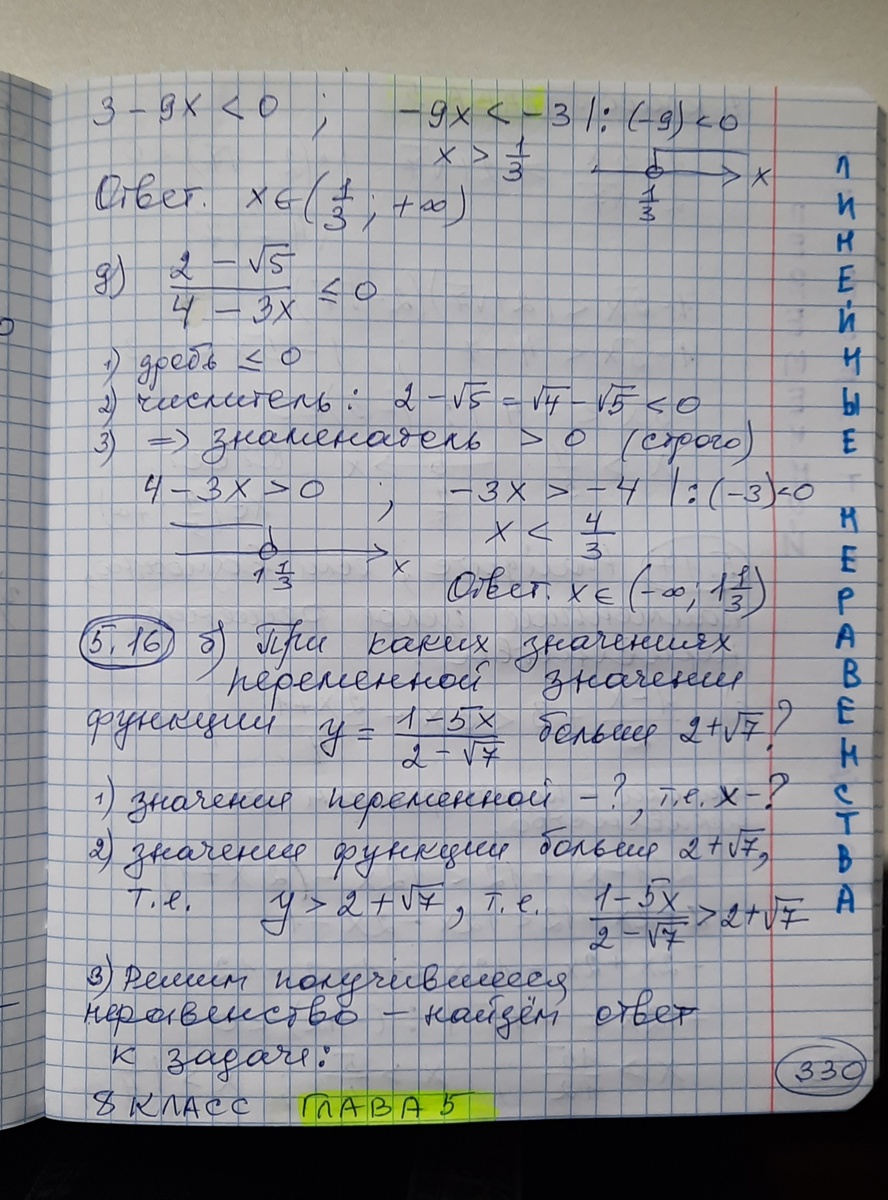 3 - 9x < 0 ; -9x < -3 |: (-9) < 0
x > 1/3
x
1/3
Ответ. x ∈ (1/3 ; +∞)
д) (2 - √5)/(4 - 3x) ≤ 0
1) дробь ≤ 0
2) числитель: 2 - √5 = √4 - √5 < 0
3) => знаменатель > 0 (строго)
4 - 3x > 0 ; -3x > -4 |: (-3) < 0
x < 4/3
1 1/3 x
Ответ. x ∈ (-∞; 1 1/3)
5.16 б) При каких значениях
переменной значения
функции y = (1 - 5x)/(2 - √7) больше 2 + √7?
1) значения переменной - ?, т.е. x - ?
2) значения функции больше 2 + √7,
т.е. y > 2 + √7, т.е. (1 - 5x)/(2 - √7) > 2 + √7
3) Решим получившееся
неравенство – найдём ответ
к задаче:
8 КЛАСС ГЛАВА 5
330
ЛИНЕЙНЫЕ НЕРАВЕНСТВА